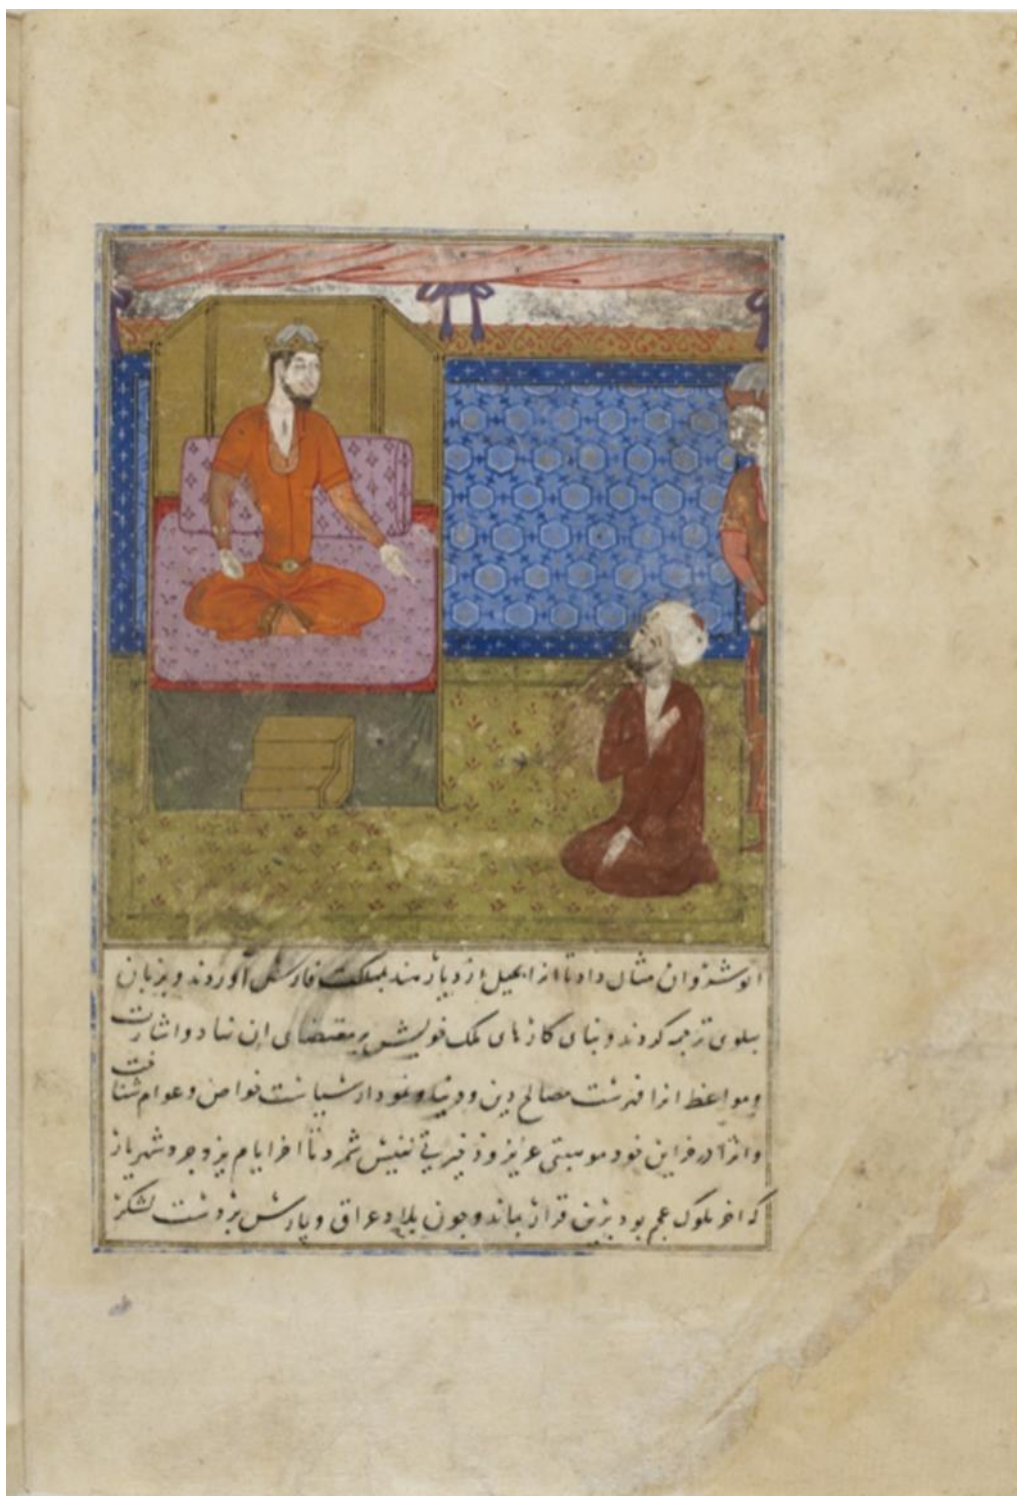 انوشروان مثال داد تا انرا بحیل از دیار هند بمملکت فارس آوردند و بزبان
پهلوی ترجمه کردند و بنای کارهای ملک خویش بر مقتضای ان نهاد و اشارت
و مواعظ انرا فهرست مصالح دین و دنیا و نمودار سیاست خواص و عوام شناخت
و انرا در خزاین خود موهبتی عزیز و ذخیرتی نفیس شمرد تا اخر ایام یزدجرد شهریار
که اخر ملوک عجم بود برین قرار بماند و چون بلاد عراق و پارس بر دست لشکر